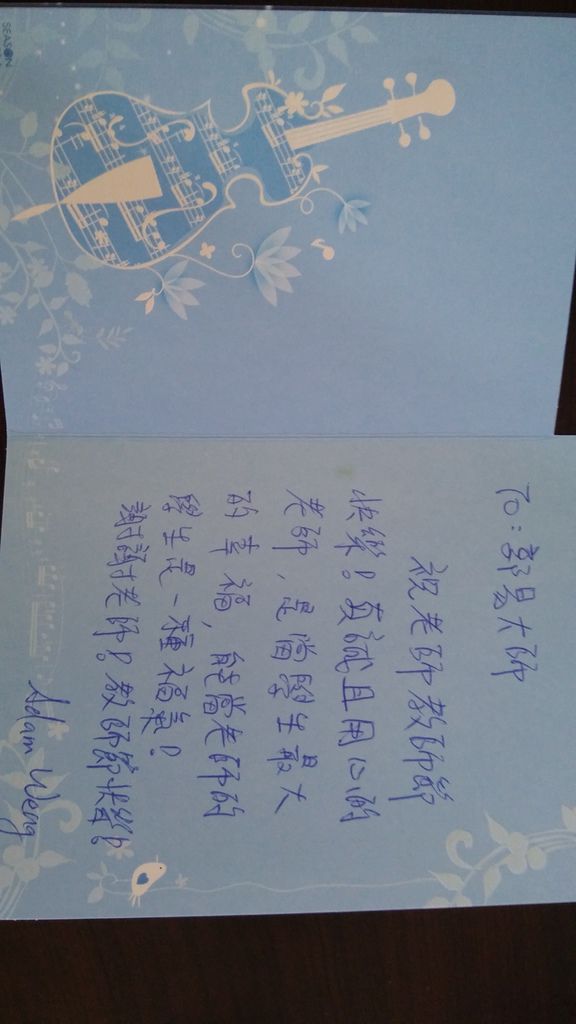 SEASON
To：郭易大師
祝老師教師節
快樂！真誠且用心的
老師，是當學生最大
的幸福，能當老師的
學生是一種福氣！
謝謝老師！教師節快樂！
Adam Weng